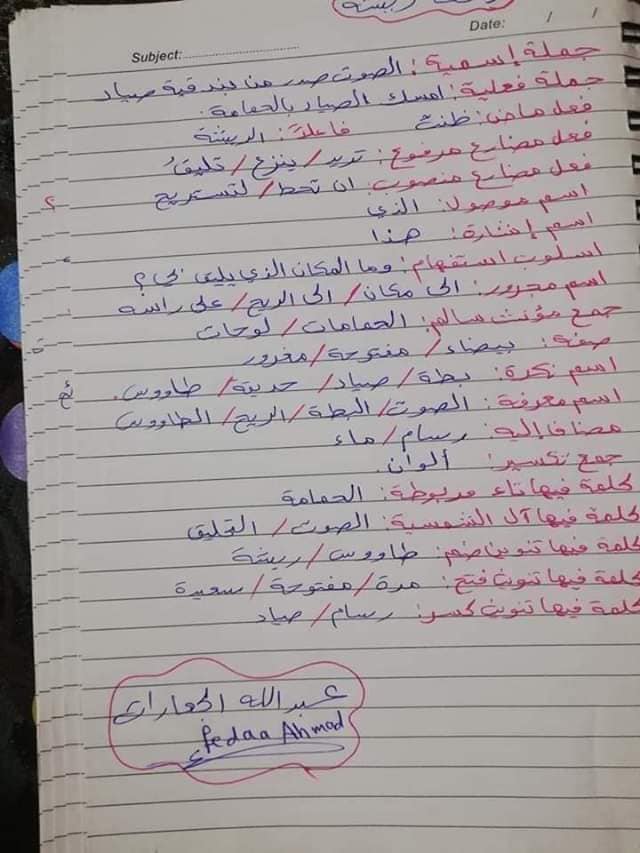 Date: / /
Subject:
جملة إسمية: الصوت صدر من بندقية صياد
جملة فعلية: امسك الصياد بالحمامة.
فعل ماضٍ: ظنت فاعل: الريشة
فعل مضارع مرفوع: تريد / ينزع / تليقُ
فعل مضارع منصوب: ان تحط / لتستريح
اسم موصول: الذي
اسم إشارة: هذا
اسلوب استفهام: وما المكان الذي يليق بي؟
اسم مجرور: الى مكان / الى الريح / على راسه
جمع مؤنث سالم: الحمامات / لوحات
صفة: بيضاء / مفتوحة / مغرور
اسم نكرة: بطة / صياد / حديقة / طاووس.
اسم معرفة: الصوت / البطة / الريح / الطاووس
مضاف إليه: رسام / ماء
جمع تكسير: ألوان.
كلمة فيها تاء مربوطة: الحمامة
كلمة فيها آل الشمسية: الصوت / التليق
كلمة فيها تنوين ضم: طاووس / ريشة
كلمة فيها تنوين فتح: مرة / مفتوحة / سعيدة
كلمة فيها تنوين كسر: رسام / صياد
عبدالله الجعارات
fedaa Ahmad